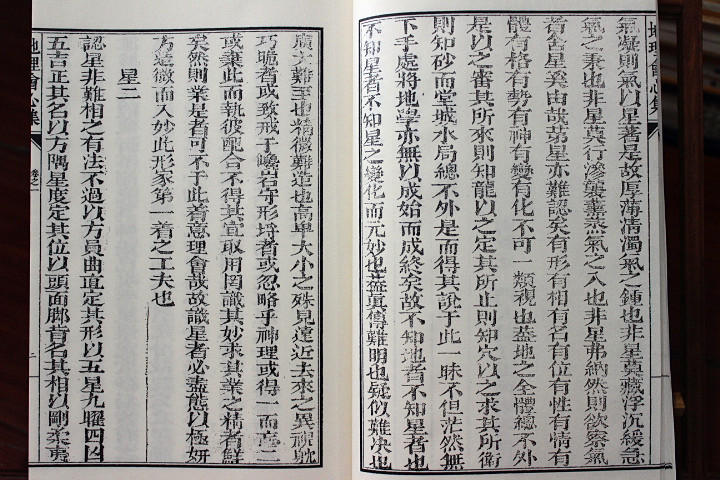 地理會心集
氣凝則氣以星著是故厚薄清濁氣之鍾也非星莫藏浮沉緩急
氣之乘也非星莫行滲漏蒸氣之入也非星弗納然則欲察氣
者舍星奚由哉第星亦難認矣有形有相有名有位有性有情有
體有格有勢有神有變有化不可一類視也蓋地之全體總不外
是以之審其所來則知龍以之定其所止則知穴以之求其所衛
則知砂而堂城水局總不外是而得其說于此一昧不但茫然無
下手處將地學亦無以成始而成終矣故不知地者不知星者也
不知星者不知星之變化而元妙也蓋真傳難明也疑似難决也
廣大難至也精微難造也高卑大小之殊見遠近去來之異視
巧詭者或致戒于巉岩守形埒者或忽略乎神理或得一而棄二
或棄此而執彼配合不得其宜取用罔識其妙求其業之精者鮮
矣然則業是者可不于此着意理會哉故識星者必盡態以極妍
方造微而入妙此形家第一着之工夫也
星二
認星非難相之有法不過以方員曲直定其形以五星九曜四凶
五吉正其名以方隅星度定其位以頭面脚背名其相以剛柔夷
地理會心集
卷之一
二